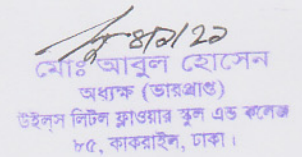 ৪/৯/২১
মোঃ আবুল হোসেন
অধ্যক্ষ (ভারপ্রাপ্ত)
উইলস লিটল ফ্লাওয়ার স্কুল এন্ড কলেজ
৮৫, কাকরাইল, ঢাকা।